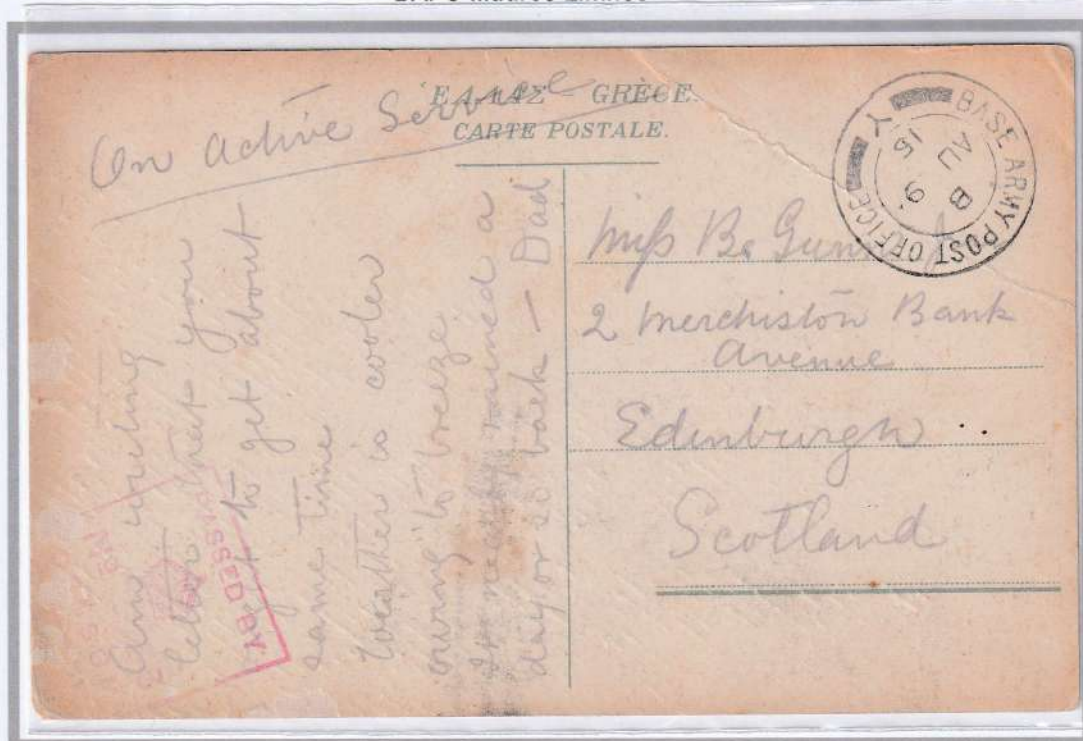 On Active Service
ΕΛΛΑΣ – GRÈCE.
CARTE POSTALE.
BASE ARMY POST OFFICE Y
B
9
AU
15
Miss B. Gunn
2 Merchiston Bank
Avenue
Edinburgh
Scotland
Am writing
letter that you
ought to get about
same time
Weather is cooler
owring to breeze
rained a
day or so back — Dad
PASSED BY